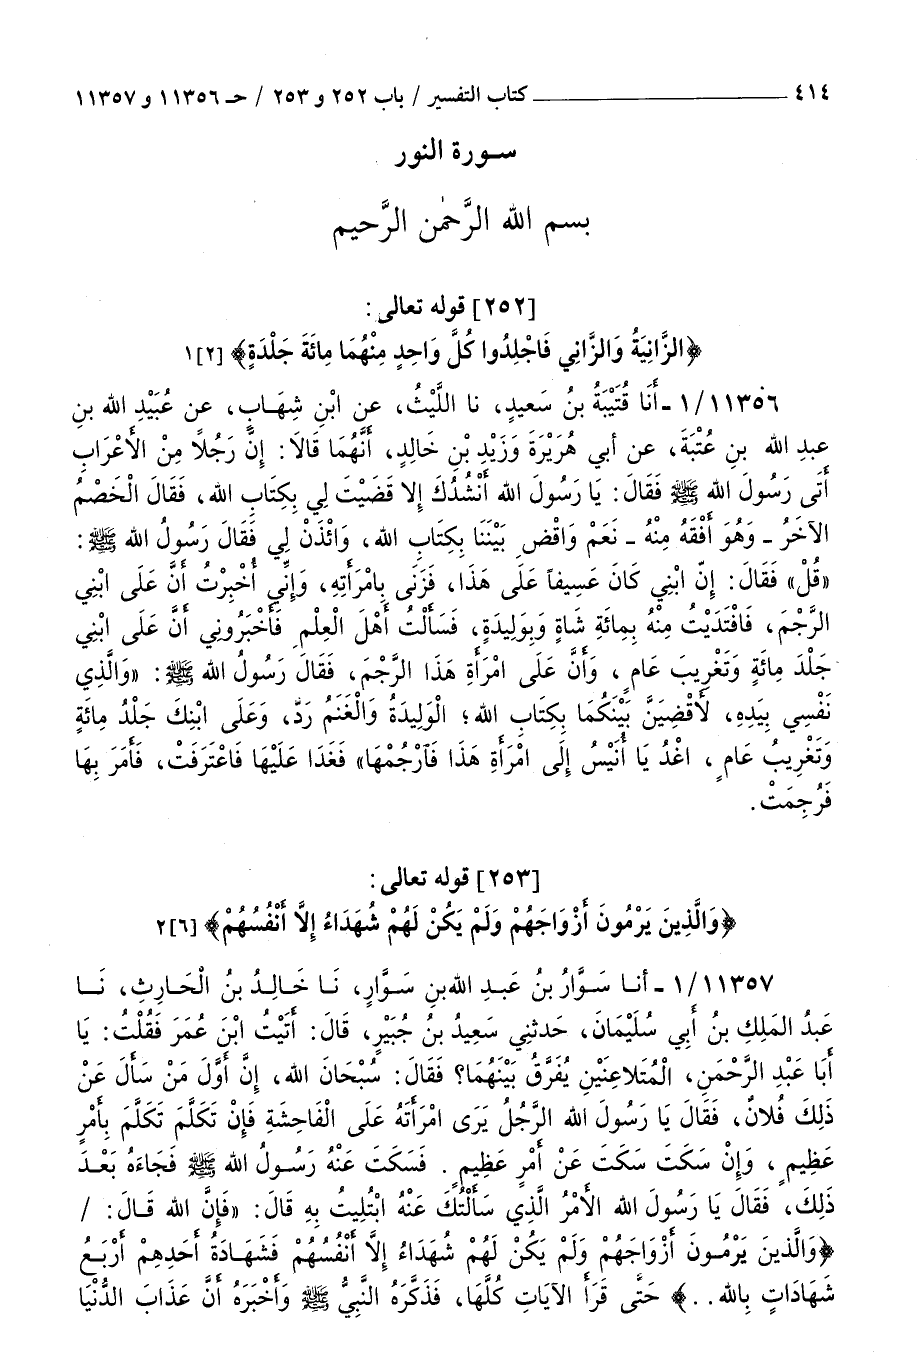 ٤١٤ ــــــــــــــــــــ كتاب التفسير / باب ٢٥٢ و ٢٥٣ / حـ ١١٣٥٦ و ١١٣٥٧
سورة النور
بسم الله الرَّحْمٰن الرَّحيم
[٢٥٢] قوله تعالى :
﴿الزَّانِيَةُ وَالزَّانِي فَاجْلِدُوا كُلَّ وَاحِدٍ مِنْهُمَا مِائَةَ جَلْدَةٍ﴾ [٢]١
١/١١٣٥٦ ـ أَنَا قُتَيْبَةُ بنُ سَعيدٍ، نا اللَّيْثُ، عنِ ابْنِ شِهَابٍ، عن عُبَيْدِ الله بنِ
عبدِ الله بنِ عُتْبَةَ، عن أبي هُرَيْرَةَ وَزَيْدِ بْنِ خَالِدٍ، أَنَّهُمَا قَالَا: إِنَّ رَجُلًا مِنْ الأَعْرَابِ
أَتَى رَسُولَ الله ﷺ فَقَالَ: يَا رَسُولَ الله أَنْشُدُكَ إِلا قَضَيْتَ لِي بِكِتَابِ الله، فَقَالَ الْخَصْمُ
الآخَرُ ـ وَهُوَ أَفْقَهُ مِنْهُ ـ نَعَمْ وَاقْضِ بَيْنَنَا بِكِتَابِ الله، وَائْذَنْ لِي فَقَالَ رَسُولُ الله ﷺ :
«قُلْ» فَقَالَ: إِنّ ابْنِي كَانَ عَسِيفاً عَلَى هَذَا، فَزَنَى بِامْرَأَتِهِ، وَإِنِّي أُخْبِرْتُ أَنَّ عَلَى ابْنِي
الرَّجْمَ، فَافْتَدَيْتُ مِنْهُ بِمِائَةِ شَاةٍ وَبِوَلِيدَةٍ، فَسَأَلْتُ أَهْلَ الْعِلْمِ فَأَخْبَرُونِي أَنَّ عَلَى ابْنِي
جَلْدَ مِائَةٍ وَتَغْرِيبَ عَامٍ ، وَأَنَّ عَلَى امْرَأَةِ هَذَا الرَّجْمَ، فَقَالَ رَسُولُ الله ﷺ: «وَالَّذِي
نَفْسِي بِيَدِهِ، لَأَقْضِيَنَّ بَيْنَكُمَا بِكِتَابِ الله؛ الْوَلِيدَةُ وَالْغَنَمُ رَدّ، وَعَلَى ابْنِكَ جَلْدُ مِائَةٍ
وَتَغْرِيبُ عَامٍ ، اغْدُ يَا أُنَيْسُ إِلَى امْرَأَةِ هَذَا فَآرْجُمْهَا» فَغَدَا عَلَيْهَا فَاعْتَرَفَتْ، فَأَمَرَ بِهَا
فَرُجِمَتْ .
[٢٥٣] قوله تعالى :
﴿وَالَّذِينَ يَرْمُونَ أَزْوَاجَهُمْ وَلَمْ يَكُنْ لَهُمْ شُهَدَاءُ إِلَّا أَنْفُسُهُمْ﴾ [٦]٢
١/١١٣٥٧ ـ أنـا سَوَّارُ بنُ عَبـدِ اللهبنِ سَوَّارٍ، نَـا خَـالِـدُ بنُ الْحَـارِثِ، نَـا
عَبدُ المَلِكِ بنُ أَبِي سُلَيْمَانَ، حَدثنِي سَعِيدُ بنُ جُبَيْرٍ، قَالَ: أَتَيْتُ ابْنَ عُمَرَ فَقُلْتُ: يَا
أَبَا عَبْدِ الرَّحْمَنِ، الْمُتَلاعِنَيْنِ يُفَرَّقُ بَيْنَهُمَا؟ فَقَالَ: سُبْحَانَ الله، إِنَّ أَوَّلَ مَنْ سَأَلَ عَنْ
ذَلِكَ فُلانٌ، فَقَالَ يَا رَسُولَ الله الرَّجُلُ يَرَى امْرَأَتَهُ عَلَى الْفَاحِشَةِ فَإِنْ تَكَلَّمَ تَكَلَّمَ بِأَمْرٍ
عَظِيمٍ ، وَإِنْ سَكَتَ سَكَتَ عَنْ أَمْرٍ عَظِيمٍ . فَسَكَتَ عَنْهُ رَسُـولُ الله ﷺ فَجَاءَهُ بَعْـدَ
ذَلِكَ، فَقَالَ يَا رَسُولَ الله الأَمْرُ الَّذِي سَأَلْتُكَ عَنْهُ ابْتُلِيتُ بِهِ قَالَ: «فَإِنَّ الله قَـالَ: /
﴿وَالَّذِينَ يَرْمُـونَ أَزْوَاجَهُمْ وَلَمْ يَكُنْ لَهُمْ شُهَدَاءُ إِلَّا أَنْفُسُهُمْ فَشَهَـادَةُ أَحَدِهِمْ أَرْبَـعُ
شَهَادَاتٍ بِالله . . ﴾ حَتَّى قَرَأَ الآيَاتِ كُلَّهَا، فَذَكَّرَهُ النَّبِيُّ ﷺ وَأَخْبَرَهُ أَنَّ عَذَابَ الدُّنْيَا